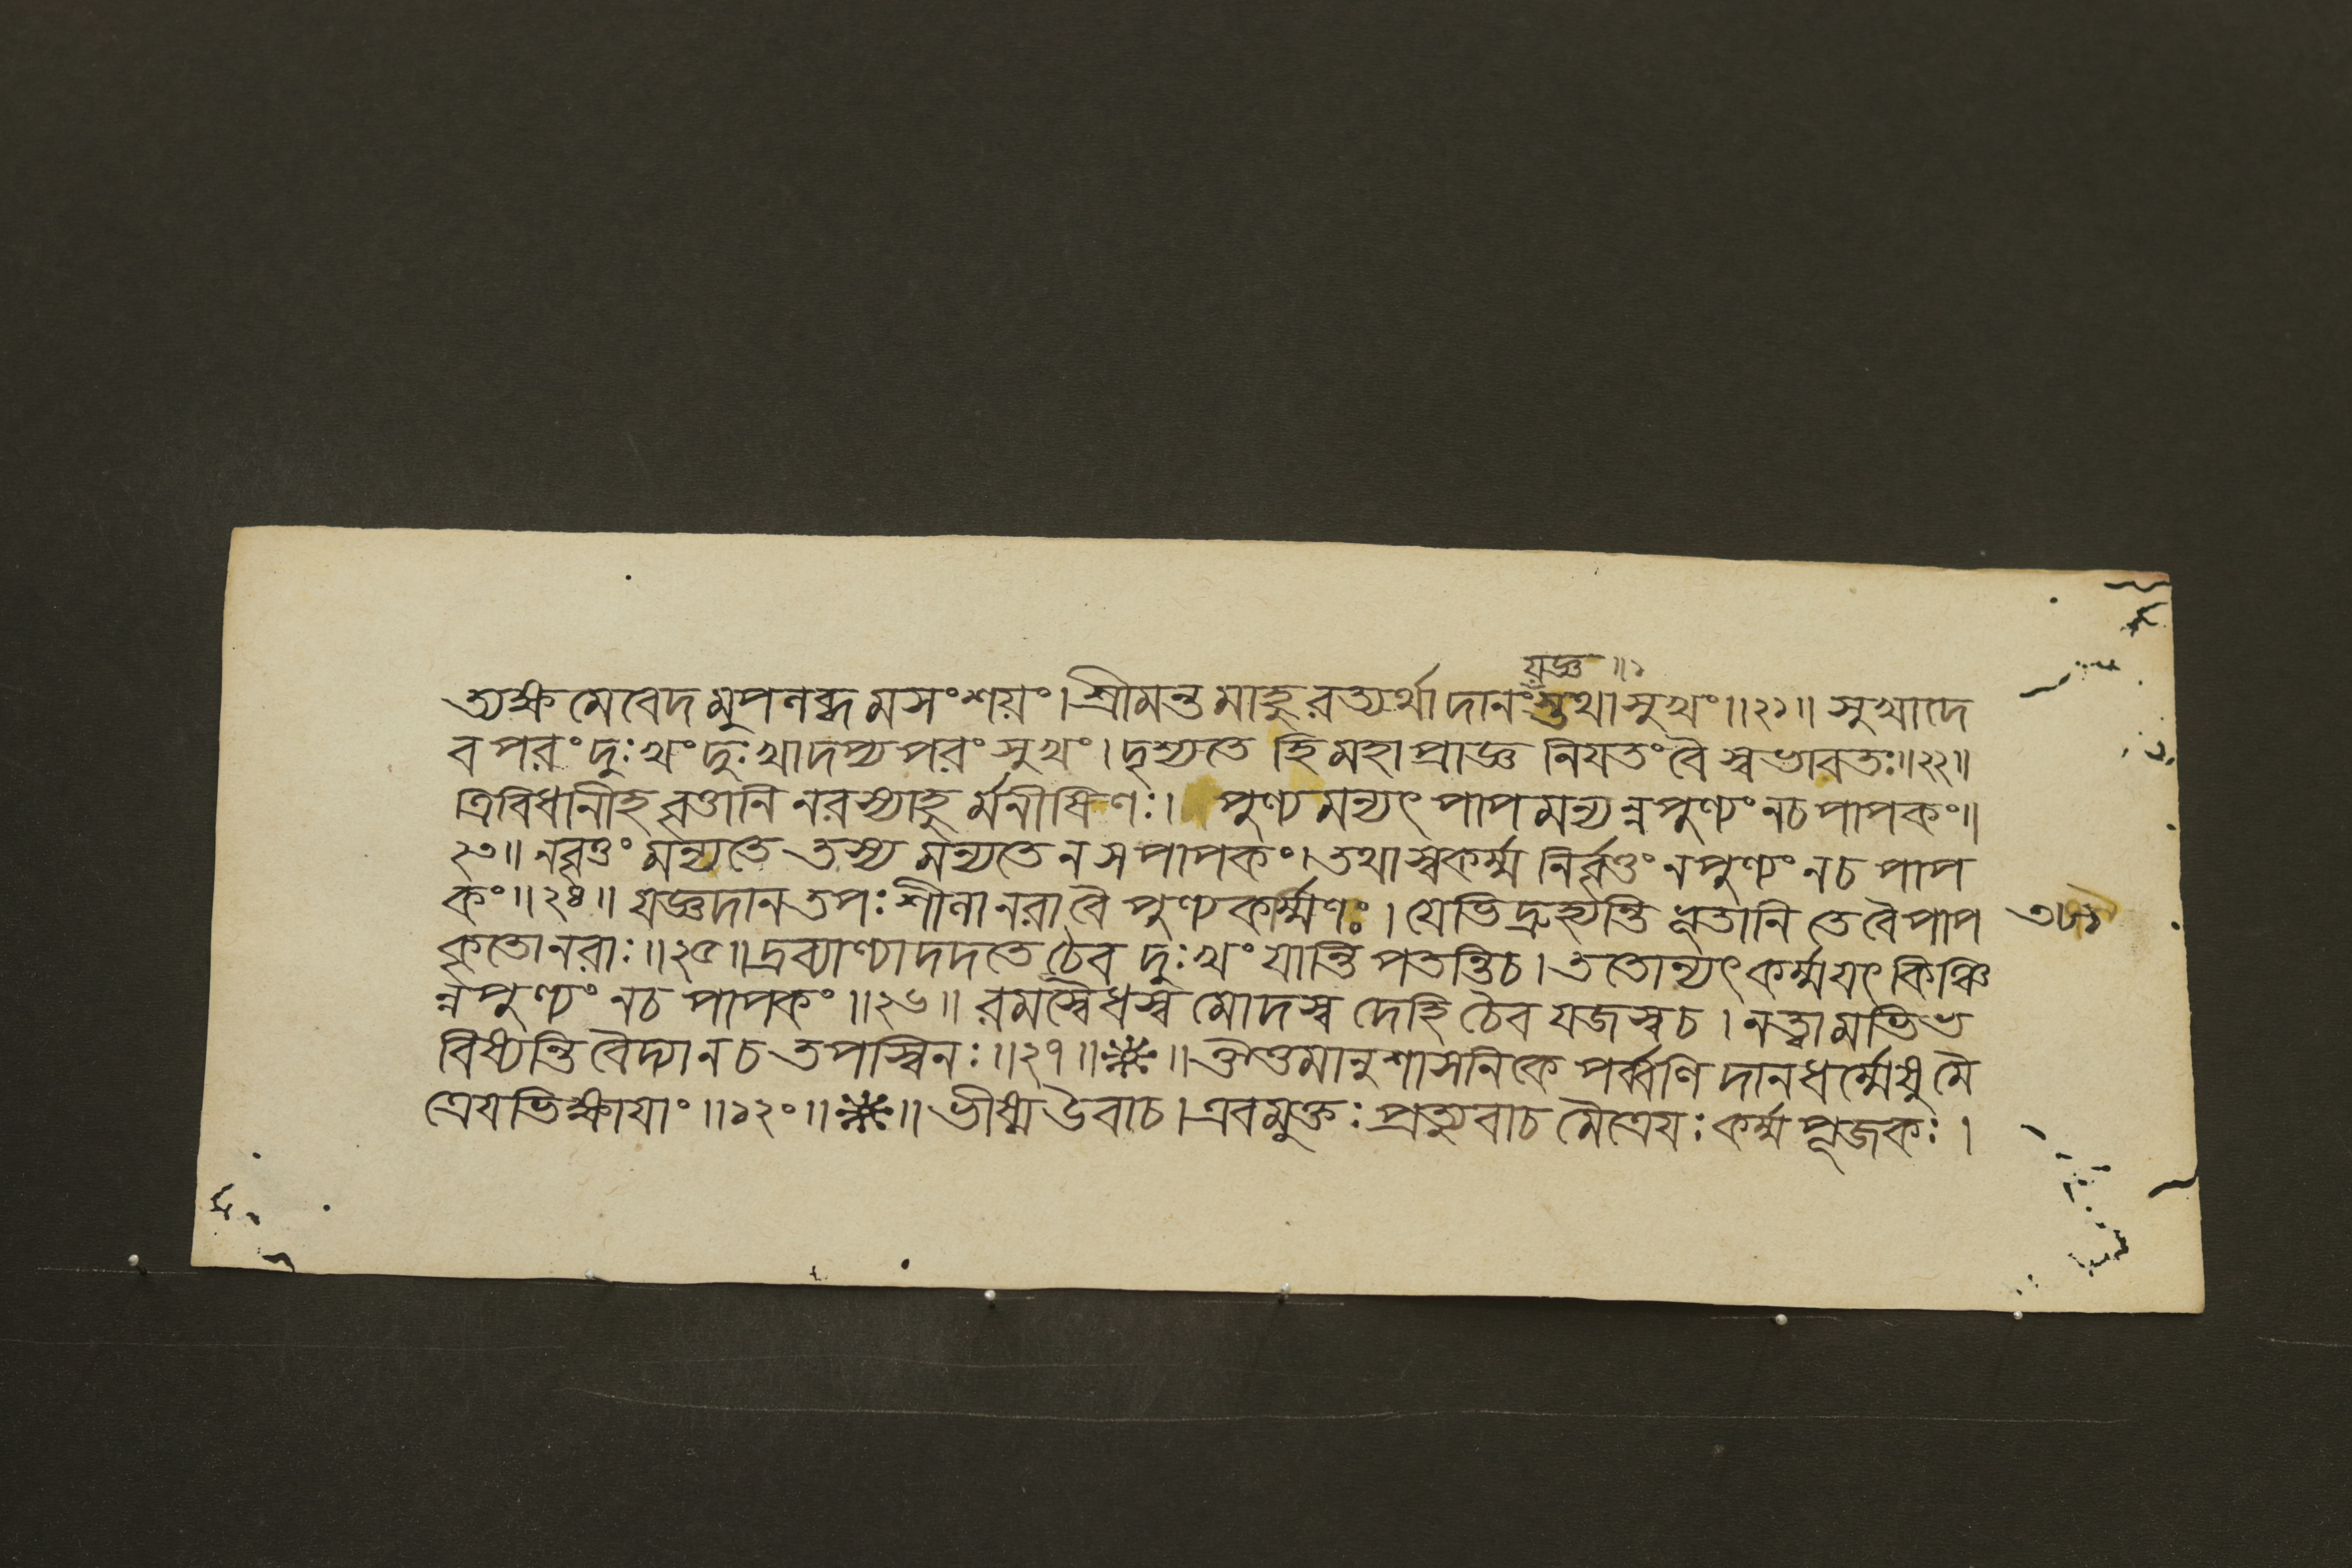 যজ্ঞ ॥১
ত্যক্ষমেবেদমুপনব্ধমসংশয়ং।শ্রীমন্তমাহুরত্যর্থাদানংস্তথাসুখং॥২১॥ সুখাদে
ব পরং দুঃখং দুঃখাদপ্য পরং সুখং। দৃশ্যতে হি মহাপ্রাজ্ঞ নিযতং বৈ স্বভাবতঃ॥২২॥
ত্রিবিধানীহ বৃত্তানি নরস্যাহু র্মনীষিণঃ। পুণ্যমন্যৎ পাপমন্যন্নপুণ্যং নচ পাপকং॥
২৩॥ নবৃত্তং মন্যতে তস্য মন্যতে ন স পাপকং। তথা স্বকর্ম্ম নির্বৃত্তং নপুণ্যং নচ পাপ
কং॥২৪॥ যজ্ঞদানতপঃশীনা নরা বৈ পুণ্যকর্ম্মণঃ। যেভিদ্রুহ্যন্তি ভূতানি তে বৈ পাপ
কৃতোনরাঃ॥২৫॥ দ্রব্যাণ্যাদদতে চৈব দুঃখং যান্তি পতন্তিচ। ততোন্যৎ কর্ম্মযৎ কিঞ্চি
ন্ন পুণ্যং নচ পাপকং॥২৬॥ রমস্বৈধস্ব মোদস্ব দেহি চৈব যজস্বচ। নত্বামভিভ
বিধ্যন্তি বৈদ্যানচ তপস্বিনঃ॥২৭॥ ॥ঔত্তমানুশাসনিকে পর্ব্বণি দানধর্ম্মেষু মৈ
ত্রেযভিক্ষাযাং॥১২০॥ ॥ ভীষ্ম উবাচ। এবমুক্তঃ প্রত্যুবাচ মৈত্রেযঃ কর্ম্মপূজকঃ।